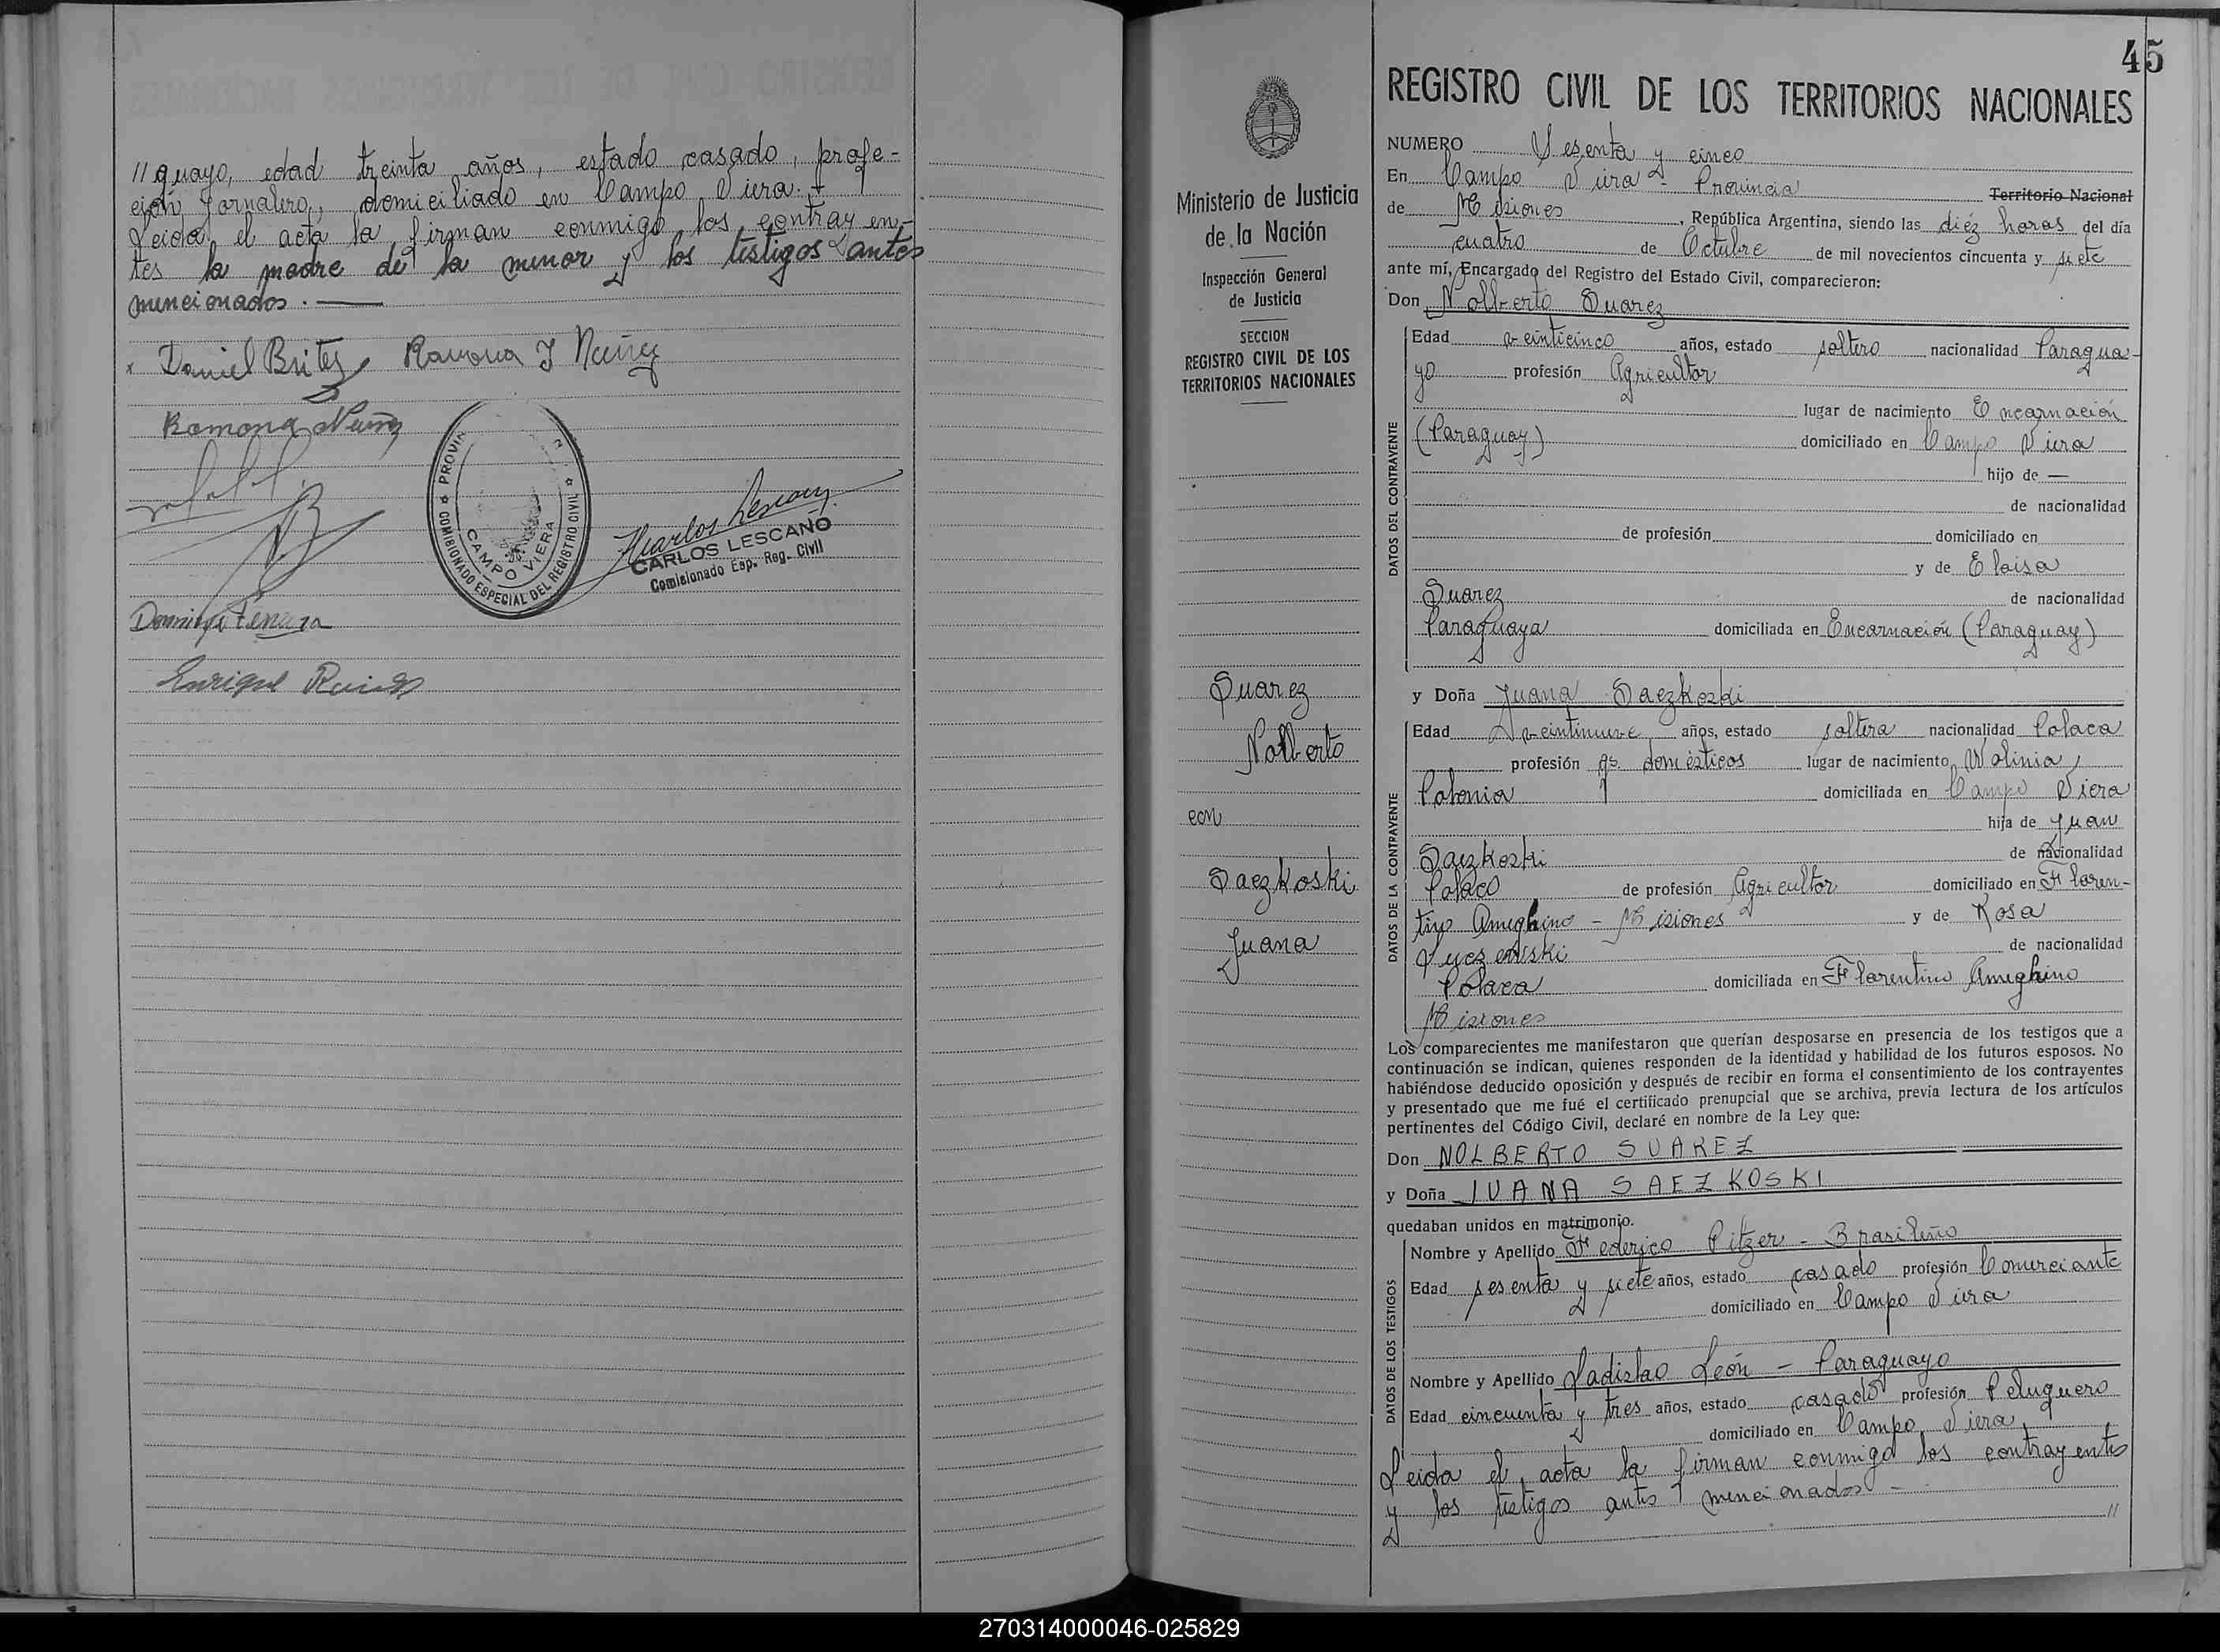 // guayo, edad treinta años, estado casado, profe-
ción Jornalero, domiciliado en Campo Viera.
Leida el acta la firman conmigo los contrayen-
tes la madre de la menor y los testigos antes
mencionados.
Daniel Britez Ramona I Nuñez
Ramona Nuñez
PROVIN
COMISIONADO ESPECIAL DEL REGISTRO CIVIL
CAMPO VIERA
Carlos Lescano
CARLOS LESCANO
Comisionado Esp. Reg. Civil
Enrique
45
Ministerio de Justicia
de la Nación
Inspección General
de Justicia
SECCION
REGISTRO CIVIL DE LOS
TERRITORIOS NACIONALES
Suarez
Nolberto
con
Saezkoski
Juana
REGISTRO CIVIL DE LOS TERRITORIOS NACIONALES
NUMERO Sesenta y cinco
En Campo Viera - Provincia Territorio Nacional
de Misiones, República Argentina, siendo las diéz horas del día
cuatro de Octubre de mil novecientos cincuenta y siete
ante mí, Encargado del Registro del Estado Civil, comparecieron:
Don Nolberto Suarez
DATOS DEL CONTRAYENTE
Edad veinticinco años, estado soltero nacionalidad Paragua-
yo profesión Agricultor
lugar de nacimiento Encarnación
(Paraguay) domiciliado en Campo Viera
hijo de —
de nacionalidad
de profesión domiciliado en
y de Eloisa
Suarez de nacionalidad
Paraguaya domiciliada en Encarnación (Paraguay)
y Doña Juana Saezkoski
DATOS DE LA CONTRAYENTE
Edad veintinueve años, estado soltera nacionalidad Polaca
profesión qs. domésticos lugar de nacimiento Wolinia,
Polonia domiciliada en Campo Viera
hija de Juan
Saezkoski de nacionalidad
Polaco de profesión Agricultor domiciliado en Floren-
tino Ameghino - Misiones y de Rosa
de nacionalidad
Polaca domiciliada en Florentino Ameghino
Misiones
Los comparecientes me manifestaron que querían desposarse en presencia de los testigos que a
continuación se indican, quienes responden de la identidad y habilidad de los futuros esposos. No
habiéndose deducido oposición y después de recibir en forma el consentimiento de los contrayentes
y presentado que me fué el certificado prenupcial que se archiva, previa lectura de los artículos
pertinentes del Código Civil, declaré en nombre de la Ley que:
Don NOLBERTO SUAREZ
y Doña JUANA SAEZKOSKI
quedaban unidos en matrimonio.
DATOS DE LOS TESTIGOS
Nombre y Apellido Federico Pitzer - Brasileño
Edad sesenta y siete años, estado casado profesión Comerciante
domiciliado en Campo Viera
Nombre y Apellido Ladislao León - Paraguayo
Edad cincuenta y tres años, estado casado profesión Peluquero
domiciliado en Campo Viera,
Leida el acta la firman conmigo los contrayentes
y los testigos antes mencionados -
//
270314000046-025829